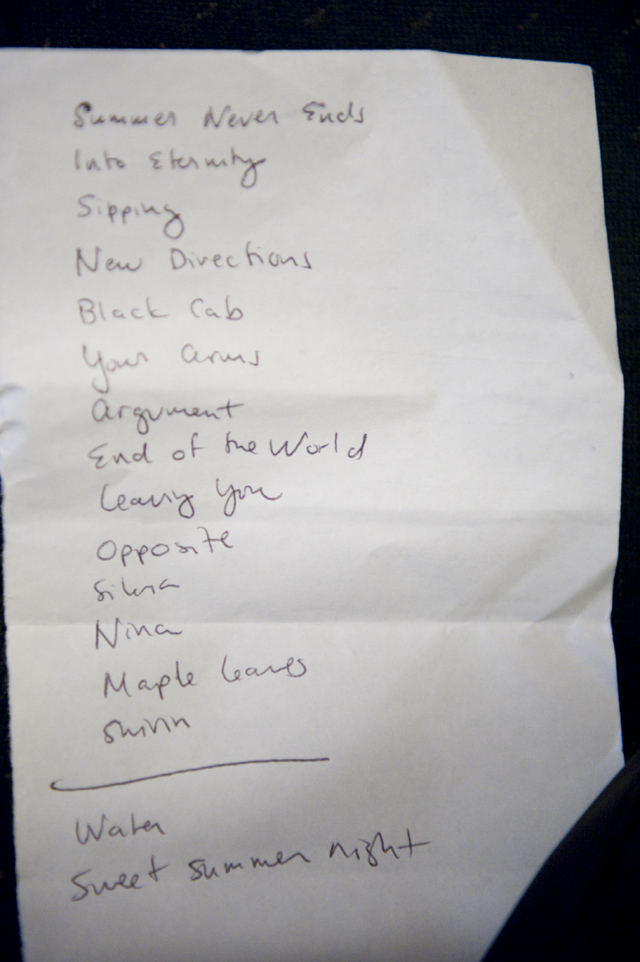 Summer Never Ends
Into Eternity
Sipping
New Directions
Black Cab
Your arms
argument
End of the World
leaving You
Opposite
Silvia
Nina
Maple leaves
Shirin
Water
Sweet summer night